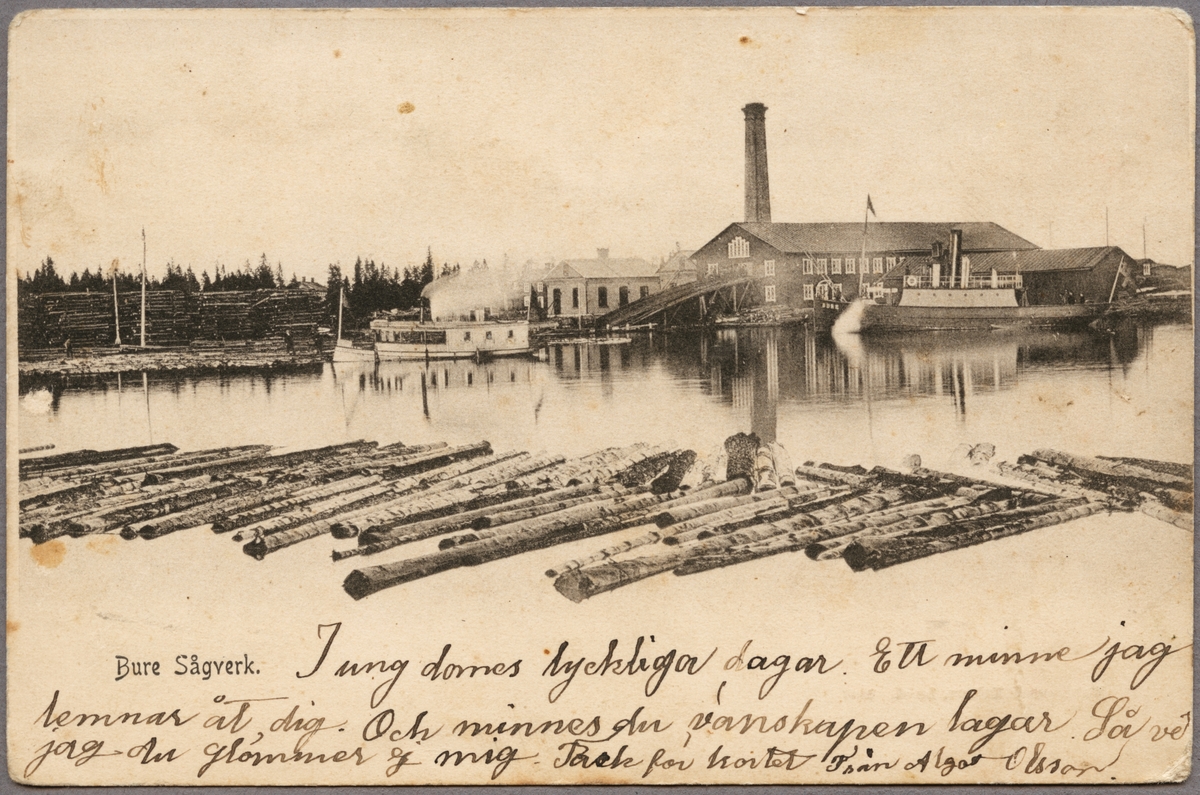 Bure Sågverk.
I ung domes lyckliga dagar. Ett minne jag
lemnar åt dig. Och minnes du vänskapen lagar. Så ve
jag du glömmer ej mig. Tack för kortet Från Algot Olsson.